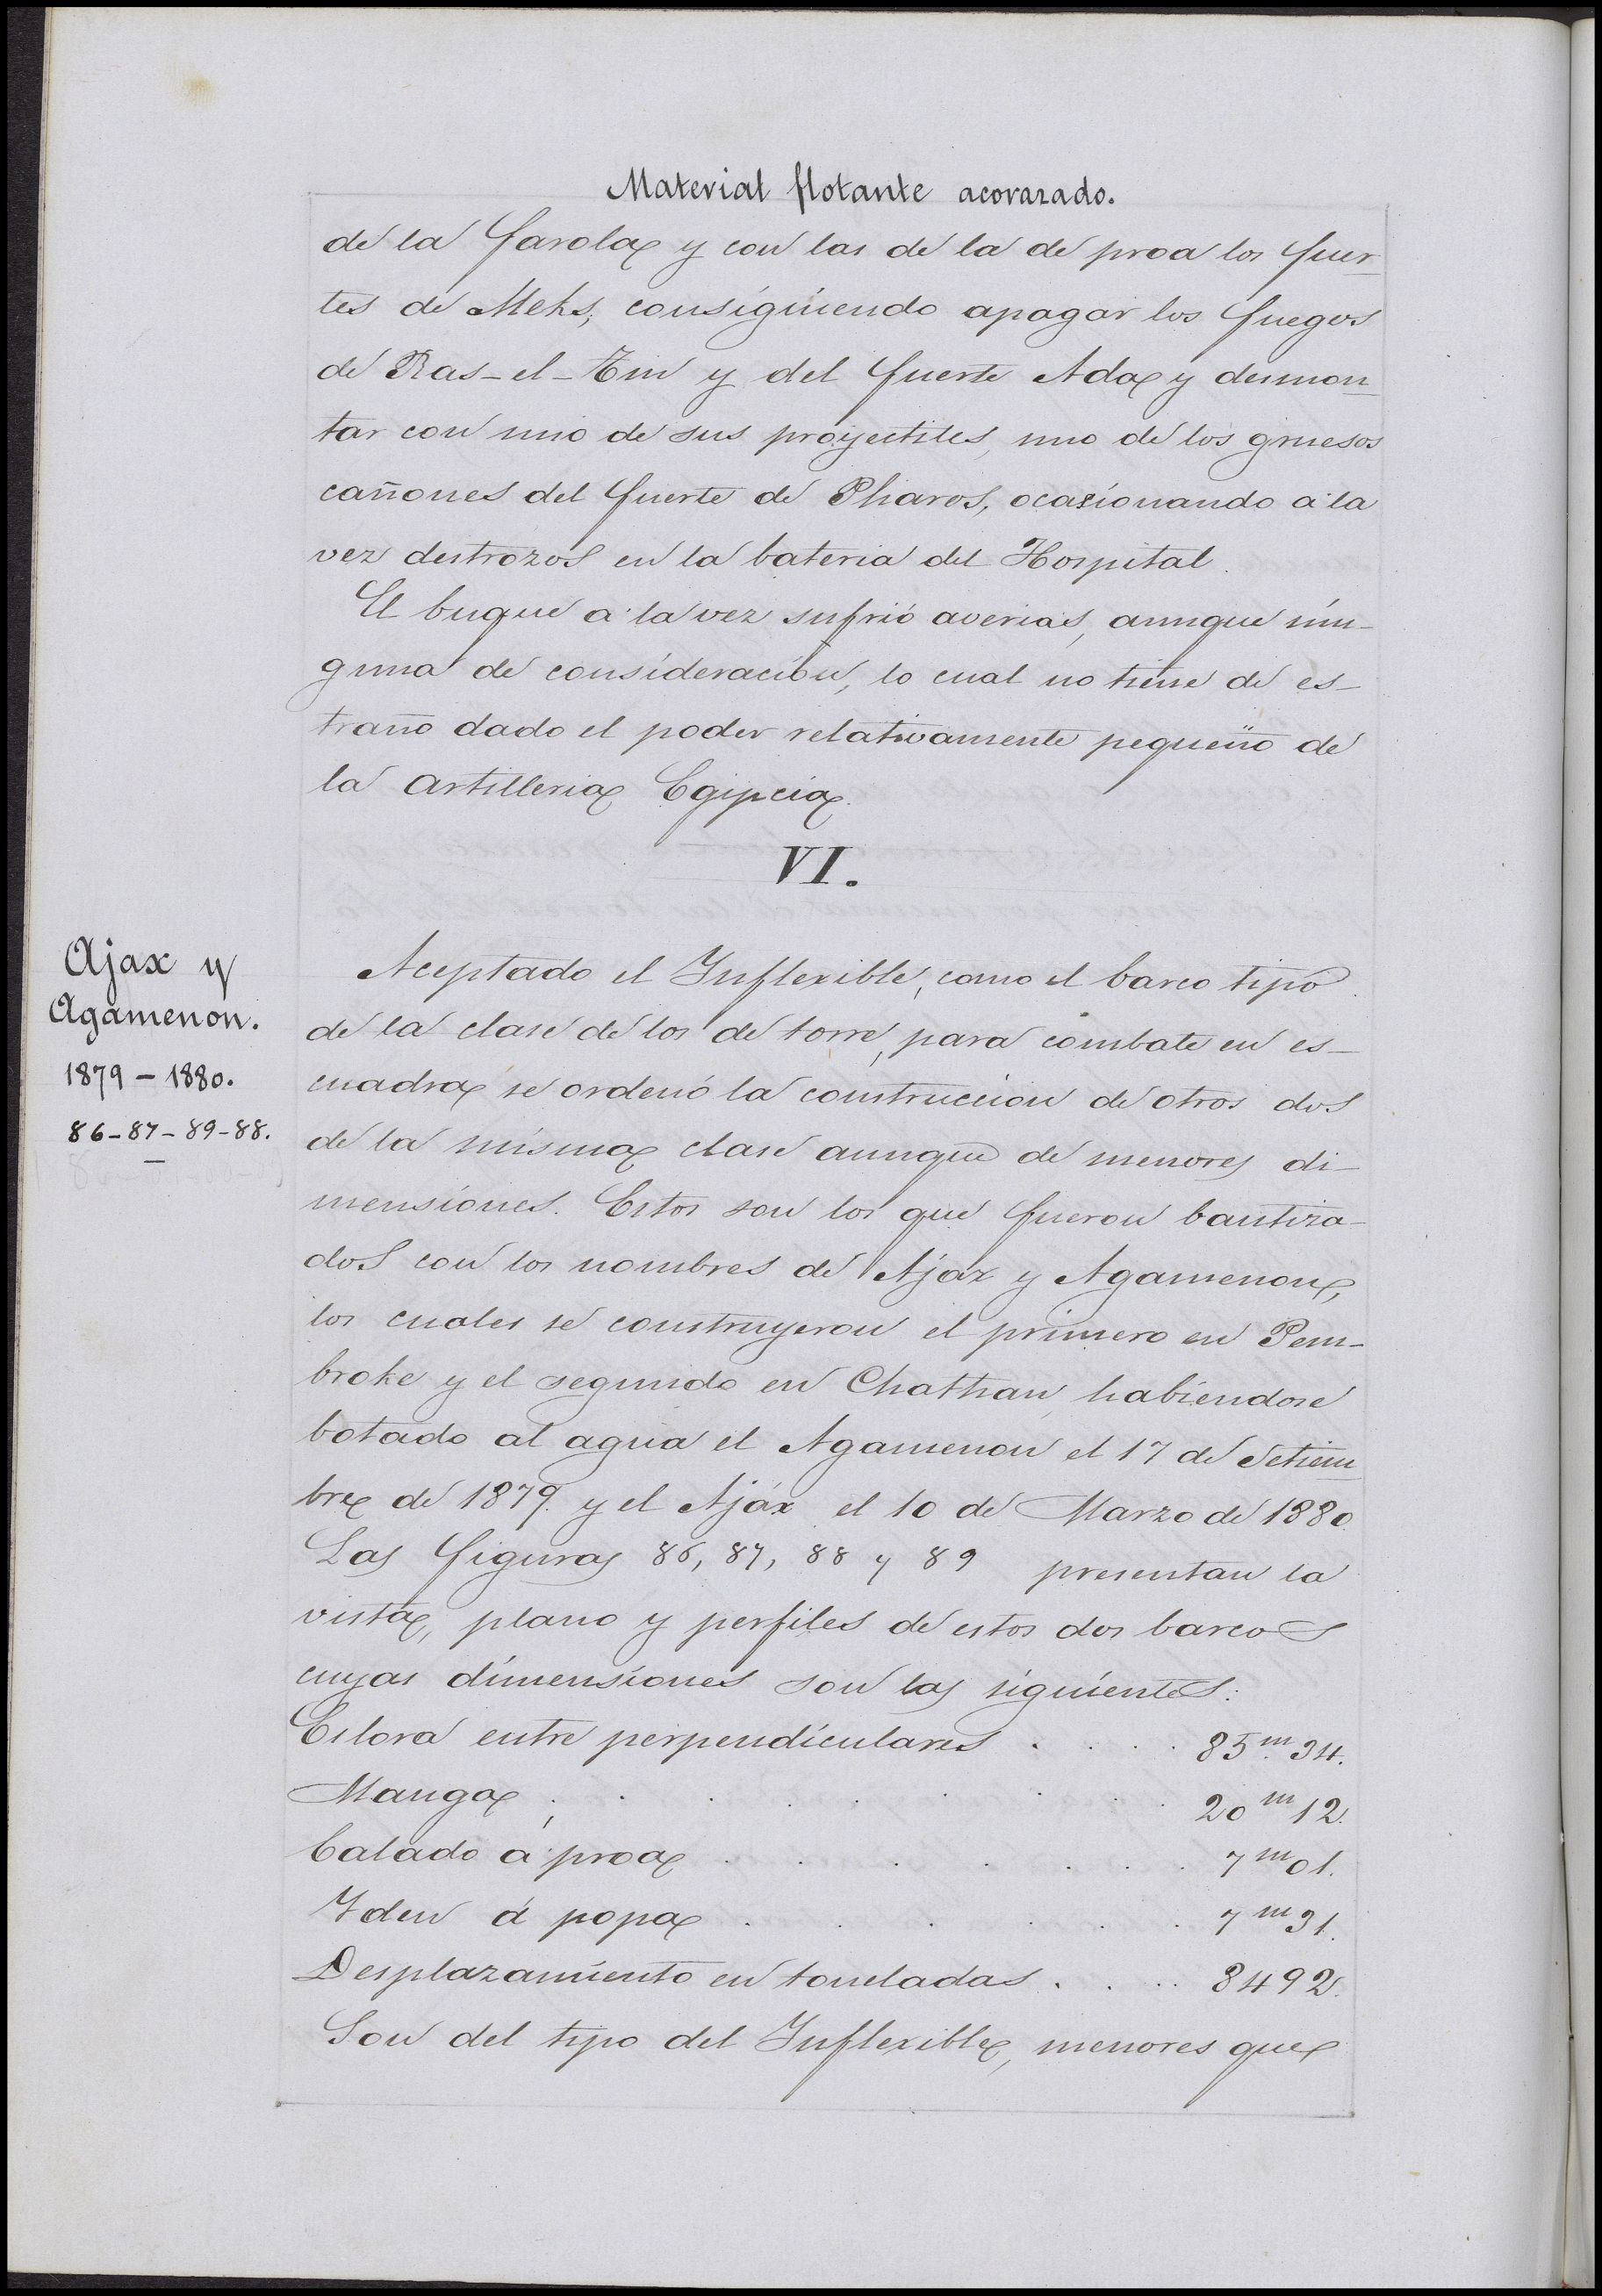 Material flotante acorazado.
de la Farola y con las de la de proa los fuer-
tes de Meks; consiguiendo apagar los fuegos
de Ras-el-Tin y del fuerte Ada y desmon-
tar con uno de sus proyectiles, uno de los gruesos
cañones del fuerte de Pharos, ocasionando á la
vez destrozos en la bateria del Hospital.
El buque á la vez sufrió averias, aunque nin-
guna de consideración, lo cual no tiene de es-
traño dado el poder relativamente pequeño de
la artilleria Egipcia.
VI.
Ajax y
Agamenon.
1879-1880.
86-87-89-88.
Aceptado el Inflexible, como el barco tipo
de la clase de los de torre, para combate en es-
cuadra se ordenó la construccion de otros dos
de la misma clase aunque de menores di-
mensiones. Estos son los que fueron bautiza-
dos con los nombres de Ajáx y Agamenon,
los cuales se construyeron el primero en Pem-
broke y el segundo en Chathan, habiendose
botado al agua el Agamenon el 17 de Setiem-
bre de 1879. y el Ajáx el 10 de Marzo de 1880.
Las figuras 86, 87, 88 y 89 presentan la
vista, plano y perfiles de estos dos barcos
cuyas dimensiones son las siguientes:
Eslora entre perpendiculares . . . . 85m.34.
Manga . . . . . . . . . 20m12.
Calado á proa . . . . . . . 7m01.
Iden á popa . . . . . . 7m31.
Desplazamiento en toneladas . . . . 8492.
Son del tipo del Inflexible, menores que